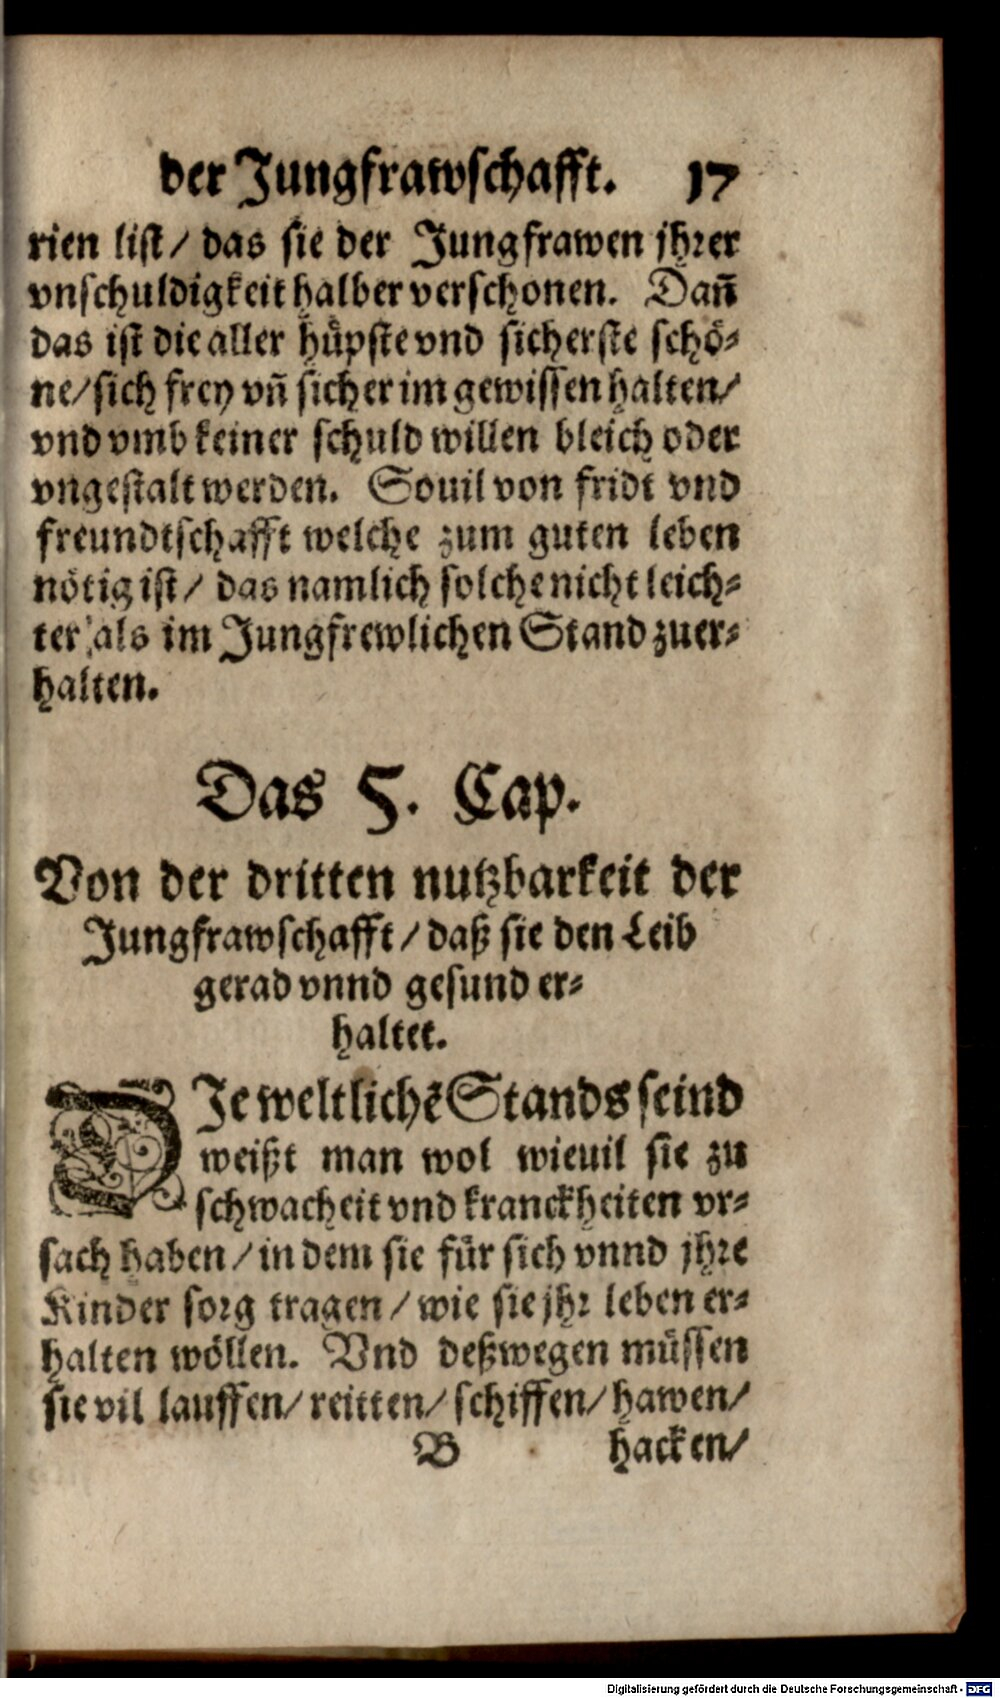 der Jungfrawschafft. 17
rien list/ das sie der Jungfrawen jhrer
vnschuldigkeit halber verschonen. Dañ
das ist die aller hüpste vnd sicherste schö-
ne/ sich frey vñ sicher im gewissen halten/
vnd vmb keiner schuld willen bleich oder
vngestalt werden. Souil von fridt vnd
freundtschafft welche zum guten leben
nötig ist/ das namlich solche nicht leich-
ter als im Jungfrewlichen Stand zuer-
halten.
Das 5. Cap.
Von der dritten nutzbarkeit der
Jungfrawschafft/ daß sie den Leib
gerad vnnd gesund er-
haltet.
DJe weltlichẽ Stands seind
weißt man wol wieuil sie zu
schwacheit vnd kranckheiten vr-
sach haben/ in dem sie für sich vnnd jhre
Kinder sorg tragen/ wie sie jhr leben er-
halten wöllen. Vnd deßwegen müssen
sie vil lauffen/ reitten/ schiffen/ hawen/
B hacken/
Digitalisierung gefördert durch die Deutsche Forschungsgemeinschaft - DFG